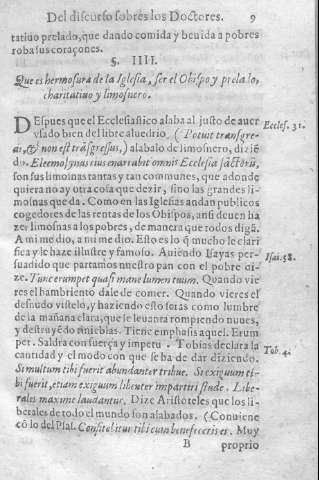 Del discurso sobre los Doctores. 9
tatiuo prelado, que dando comida y beuida a pobres
robasus coraçones.
§. IIII.
Que es hermosura de la Iglesia, ser el Obispo y prelado,
charitatiuo y limosnero.
DEspues que el Ecclesiastico alaba al justo de auer
vsado bien del libre aluedrio, (Potuit transgre-
di, & non est trãsgressus,) alabalo de limosnero, diziẽ
do. Eleemosynas eius enarrabit omnis Ecclesia sãctorũ,
son sus limosnas tantas y tan communes, que adonde
quiera no ay otra cosa que dezir, sino las grandes li-
mosnas que da. Como en las Iglesias andan publicos
cogedores de las rentas de los Obispos, ansi deuen ha
zer limosnas a los pobres, de manera que todos digã.
A mi me dio, a mi me dio. Esto es lo q̃ mucho le clari
fica y le haze illustre y famoso. Auiendo Isayas per-
suadido que partamos nuestro pan con el pobre di-
ze. Tunc erumpet quasi mane lumen tuum. Quando vie
res el hambriento dale de comer. Quando vieres el
desnudo vistelo, y haziendo esto seras como lumbre
de la mañana clara, que se leuanta rompiendo nuues,
y destruyẽdo tinieblas. Tiene emphasis aquel. Erum
pet. Saldra con fuerça y impetu. Tobias declara la
cantidad y el modo con que se ha de dar diziendo.
Si multum tibi fuerit abundanter tribue. Si exiguum ti-
bi fuerit, etiam exiguum libenter impartiri stude. Libe-
rales maxime laudantur. Dize Aristoteles que los li-
berales de todo el mundo son alabados. (Conuiene
cõ lo del Psal. Confitebitur tibi cum benefeceris ei. Muy
B proprio
Eccles. 31.
Isai. 58.
Tob. 4.